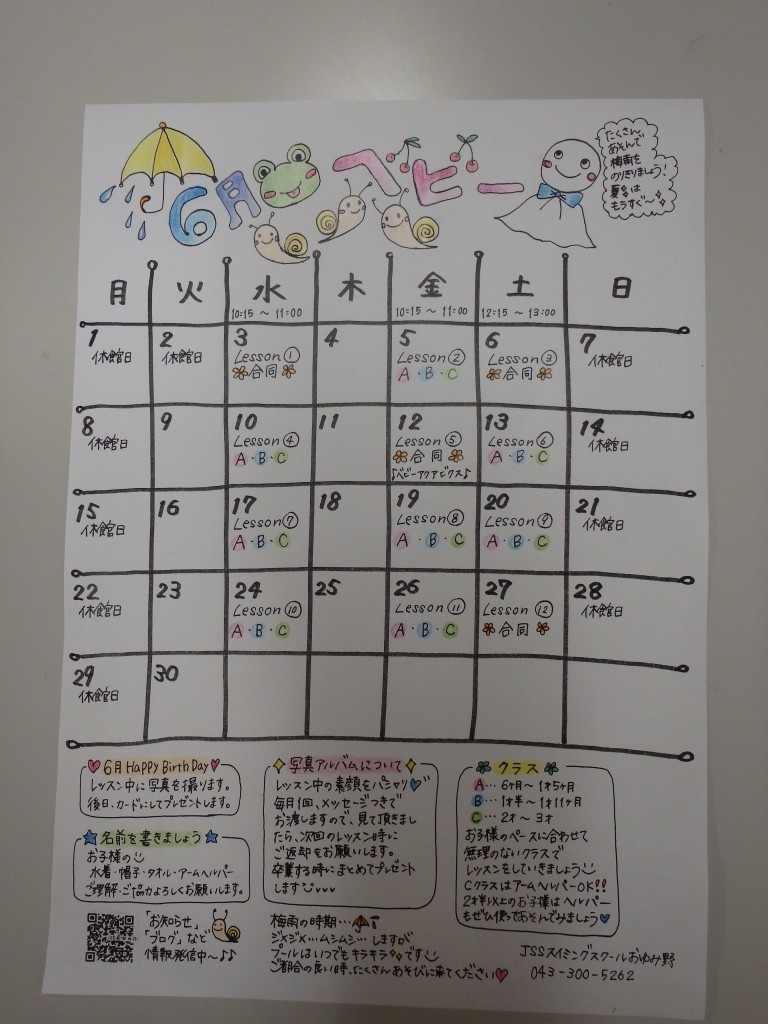 6月のベビー
たくさん
あそんで
梅雨を
のりきりましょう!
夏は
もうすぐ〜
月 火 水 木 金 土 日
10:15 〜 11:00 10:15 〜 11:00 12:15 〜 13:00
1 2 3 4 5 6 7
休館日 休館日 Lesson① Lesson② Lesson③ 休館日
合同 A・B・C 合同
8 9 10 11 12 13 14
休館日 Lesson④ Lesson⑤ Lesson⑥ 休館日
A・B・C 合同 A・B・C
♪ベビーアクアビクス♪
15 16 17 18 19 20 21
休館日 Lesson⑦ Lesson⑧ Lesson⑨ 休館日
A・B・C A・B・C A・B・C
22 23 24 25 26 27 28
休館日 Lesson⑩ Lesson⑪ Lesson⑫ 休館日
A・B・C A・B・C 合同
29 30
休館日
6月 Happy Birth Day
レッスン中に写真を撮ります。
後日、カードにしてプレゼントします。
名前を書きましょう
お子様の
水着・帽子・タオル・アームヘルパー
ご理解・ご協力よろしくお願いします。
「お知らせ」
「ブログ」など
情報発信中〜♪♪
写真アルバムについて
レッスン中の素顔をパシャリ
毎月1回、メッセージつきで
お渡しますので、見て頂きまし
たら、次回のレッスン時に
ご返却をお願いします。
卒業する時にまとめてプレゼント
します
梅雨の時期…
ジメジメ…ムシムシ…しますが
プールはいつでもキラキラです
ご都合の良い時、たくさんあそびに来てください
クラス
A… 6ヶ月〜1才5ヶ月
B… 1才半〜1才11ヶ月
C… 2才〜3才
お子様のペースに合わせて
無理のないクラスで
レッスンをしていきましょう
CクラスはアームヘルパーOK!!
2才半以上のお子様はヘルパー
もぜひ使ってあそんでみましょう
JSSスイミングスクールおゆみ野
043-300-5262